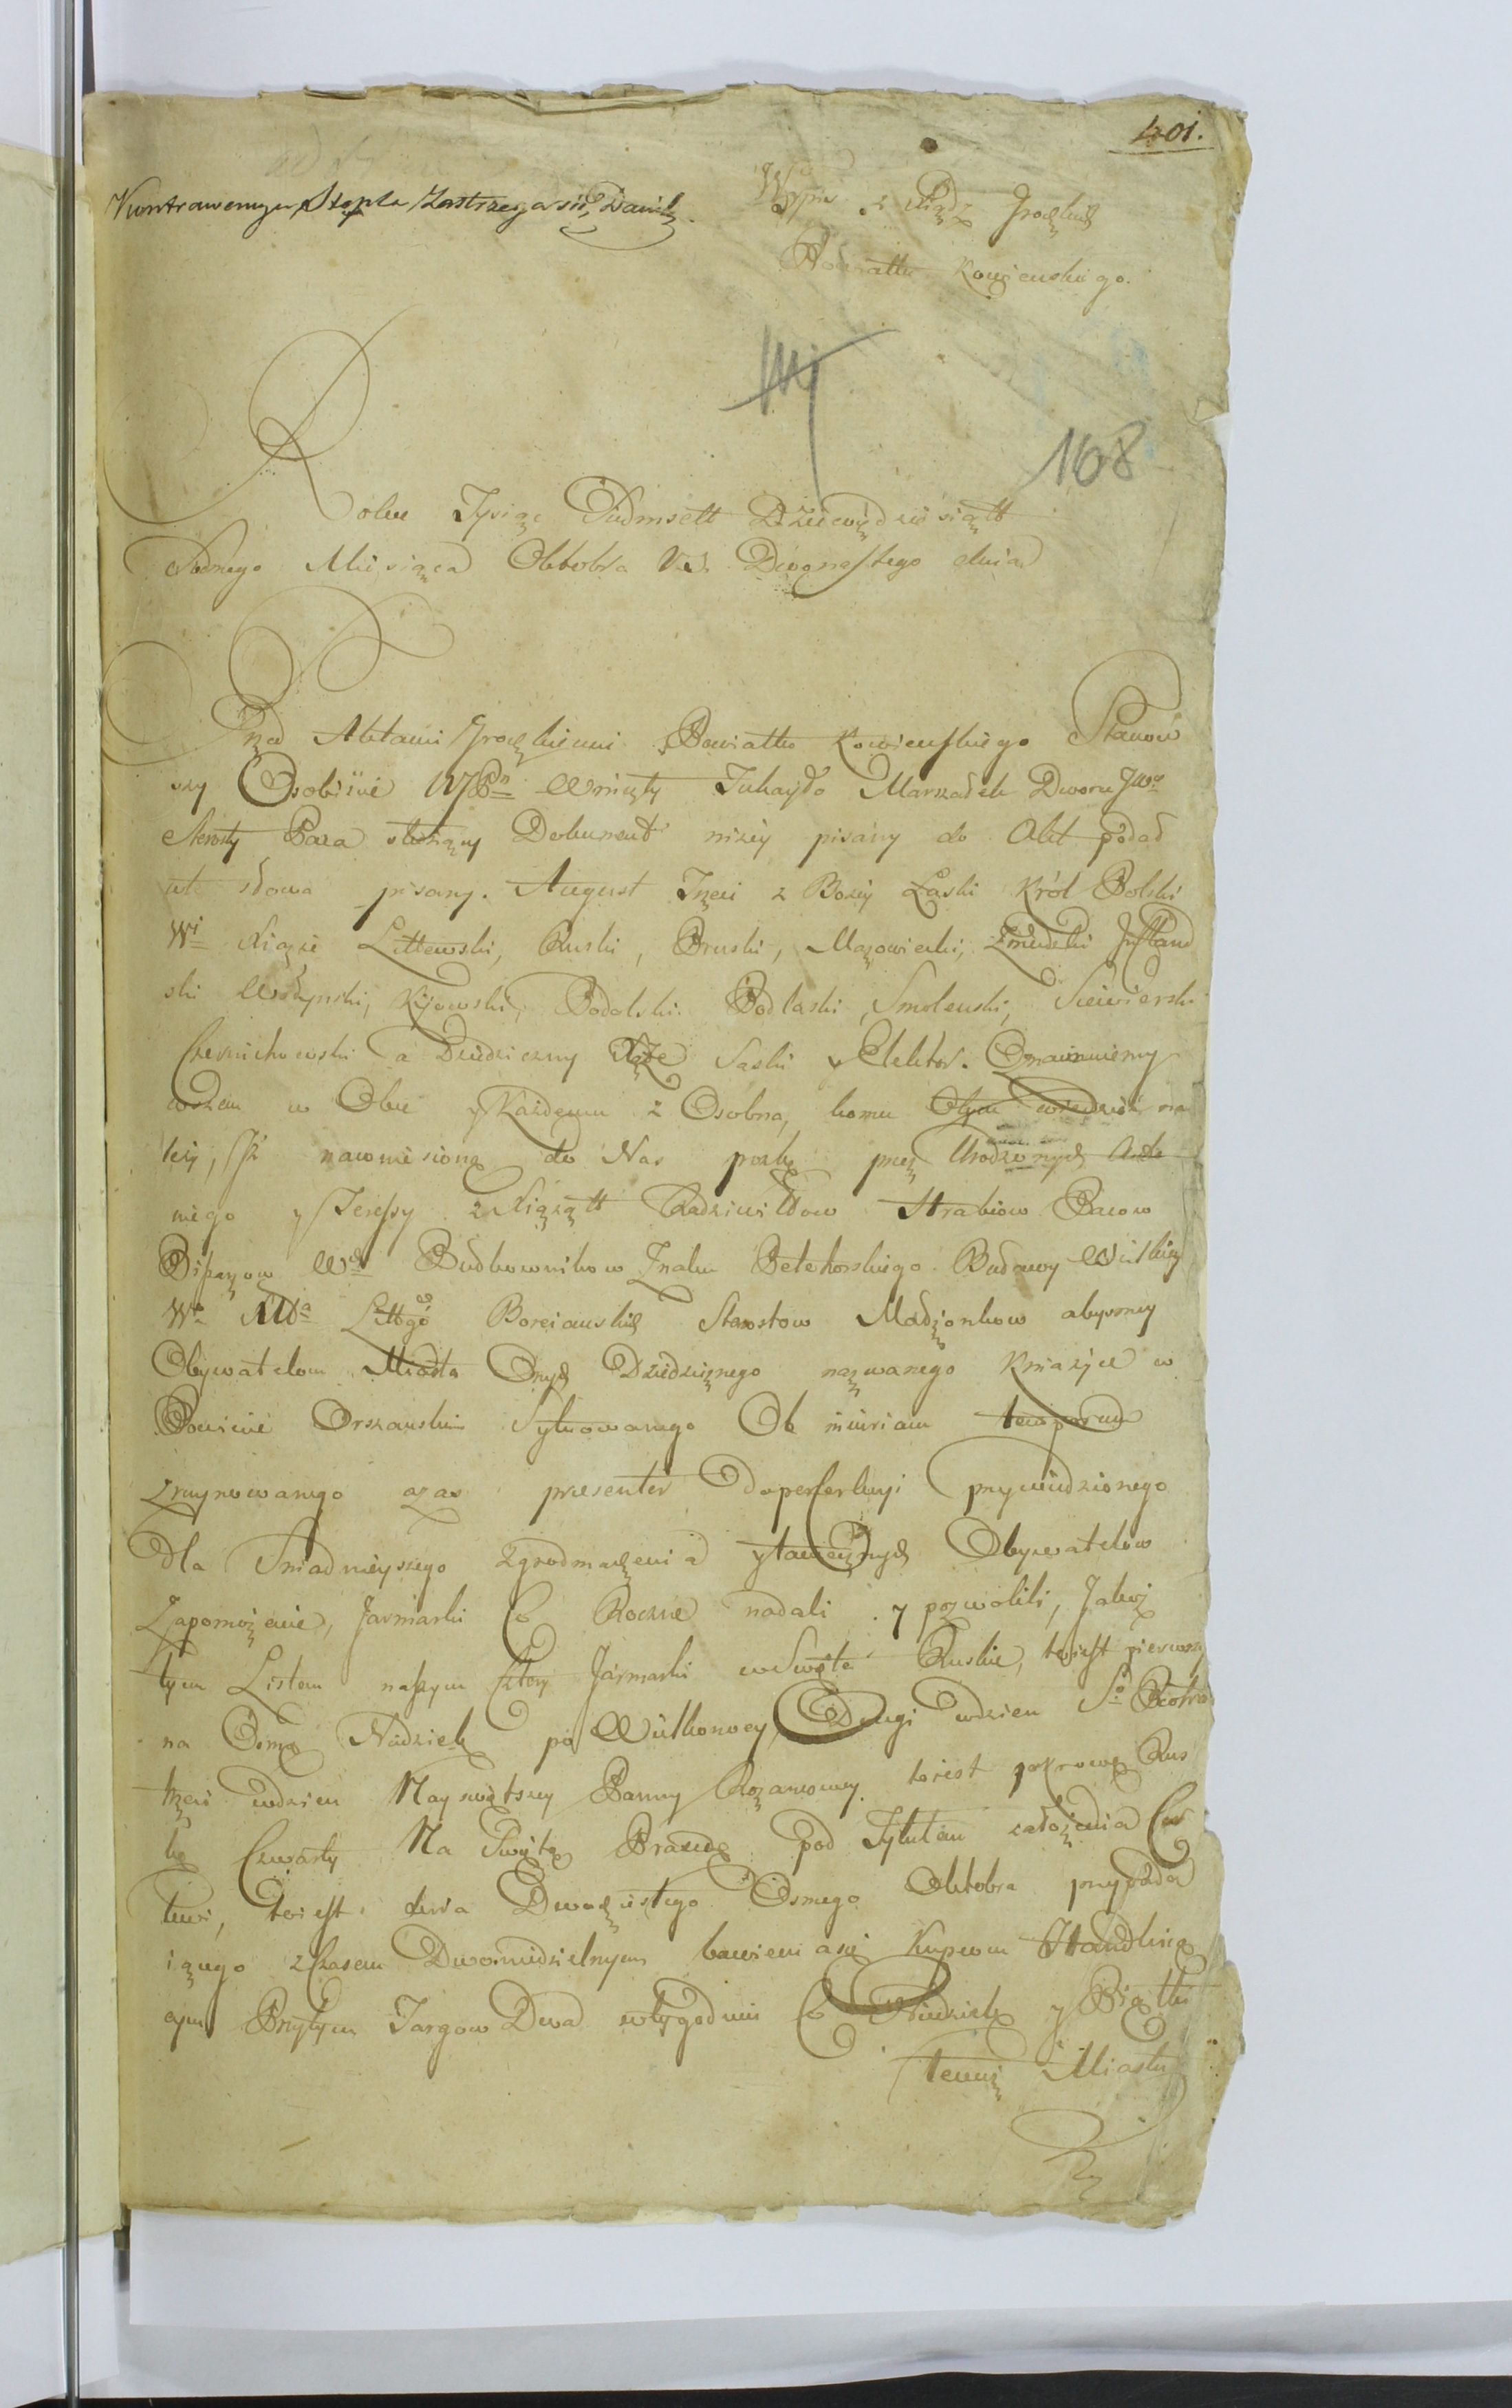 401.
Wypis z Xiąg Grodzkich
Powiattu Kowienskiego.
168
Roku Tysiąc Siedmsett Dziewiędziesiątt
Jednego Miesiąca Oktobra V. S. Dwonastego dnia
Przed Aktami Grodzkiemi Powiattu Kowienskiego Stanow
szy Osobiscie WJPn Wincenty Marszałek Dworu
Starosty Paca Dokument niżey pisany do Akt podał
słowa pisany. August Trzeci z Bożey Łaski Król Polski
Wi Xiąże Littewski, Ruski, Pruski, Mazowiecki, Żmudzki Infland
ski Wołynski, Kijowski, Podolski Podlaski, Smolenski, Siewierski
Czernichowski a Dziedziczny Xże Saski y Elektor. Oznaimuiemy
wszem w Obec y Każdemu z Osobna, komu Otym wiedzieć na
leży, Iż nawniesioną do Nas proźbę przez Urodzonych
niego y Teressy z Xiążątt Radziwiłłow Hrabiow Pacow
Pisarzow Wch Pułkownikow Znaku Petehorskiego Buławy Wielkiey
Wo Xa Littgo Starostow Małżonkow abysmy
Obywatelom Miasta Onych Dziedzicznego nazwanego Kniażyce w
Powiecie Orszanskim Sytuowanego Ob iniuriam temporum
zruynowanego azas presenter Doperfekcyi przywiedzionego
Dla Sniadnieyszego zgromadzenia y tamecznych Obywatelow
Zapomożenie, Jarmarki Co Roczne nadali y pozwolili, Jakoż
tym Listem naszym Cztery Jarmarki wSwięta Ruskie, toiest pierwszy
na Osmą Niedzielę po Wielkonocy, Drugi wdzien So Piotra
trzeci wdzien Nayswiętszey Panny Rożancowey toiest pokrowę Rus
ką Czwarty Na Swięto pod Tytułem założenia Cer
kwi, toiest dnia Dwudziestego Osmego Oktobra przypada
iącego zCzasem Dwoniedzielnym bawienia się Kupcom Handluią
cym Przytym Targow Dwa wtygodniu Co Niedzielę y Piątku
temuż Miastu